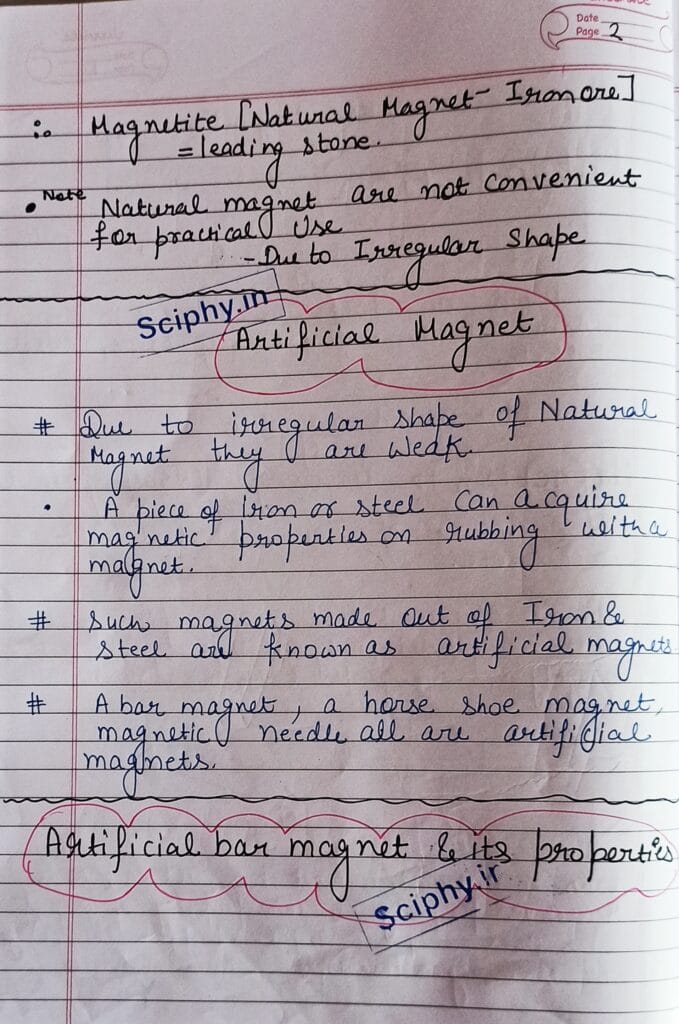 Date
Page 2
:. Magnetite [Natural Magnet- Iron ore]
= leading stone.
• Note Natural magnet are not convenient
for practical Use
- Due to Irregular Shape
Sciphy.in
Artificial Magnet
# Due to irregular shape of Natural
Magnet they are weak.
• A piece of iron or steel can acquire
magnetic properties on rubbing with a
magnet.
# Such magnets made out of Iron &
steel are known as artificial magnets.
# A bar magnet, a horse shoe magnet,
magnetic needle all are artificial
magnets.
Artificial bar magnet & its properties
Sciphy.ir